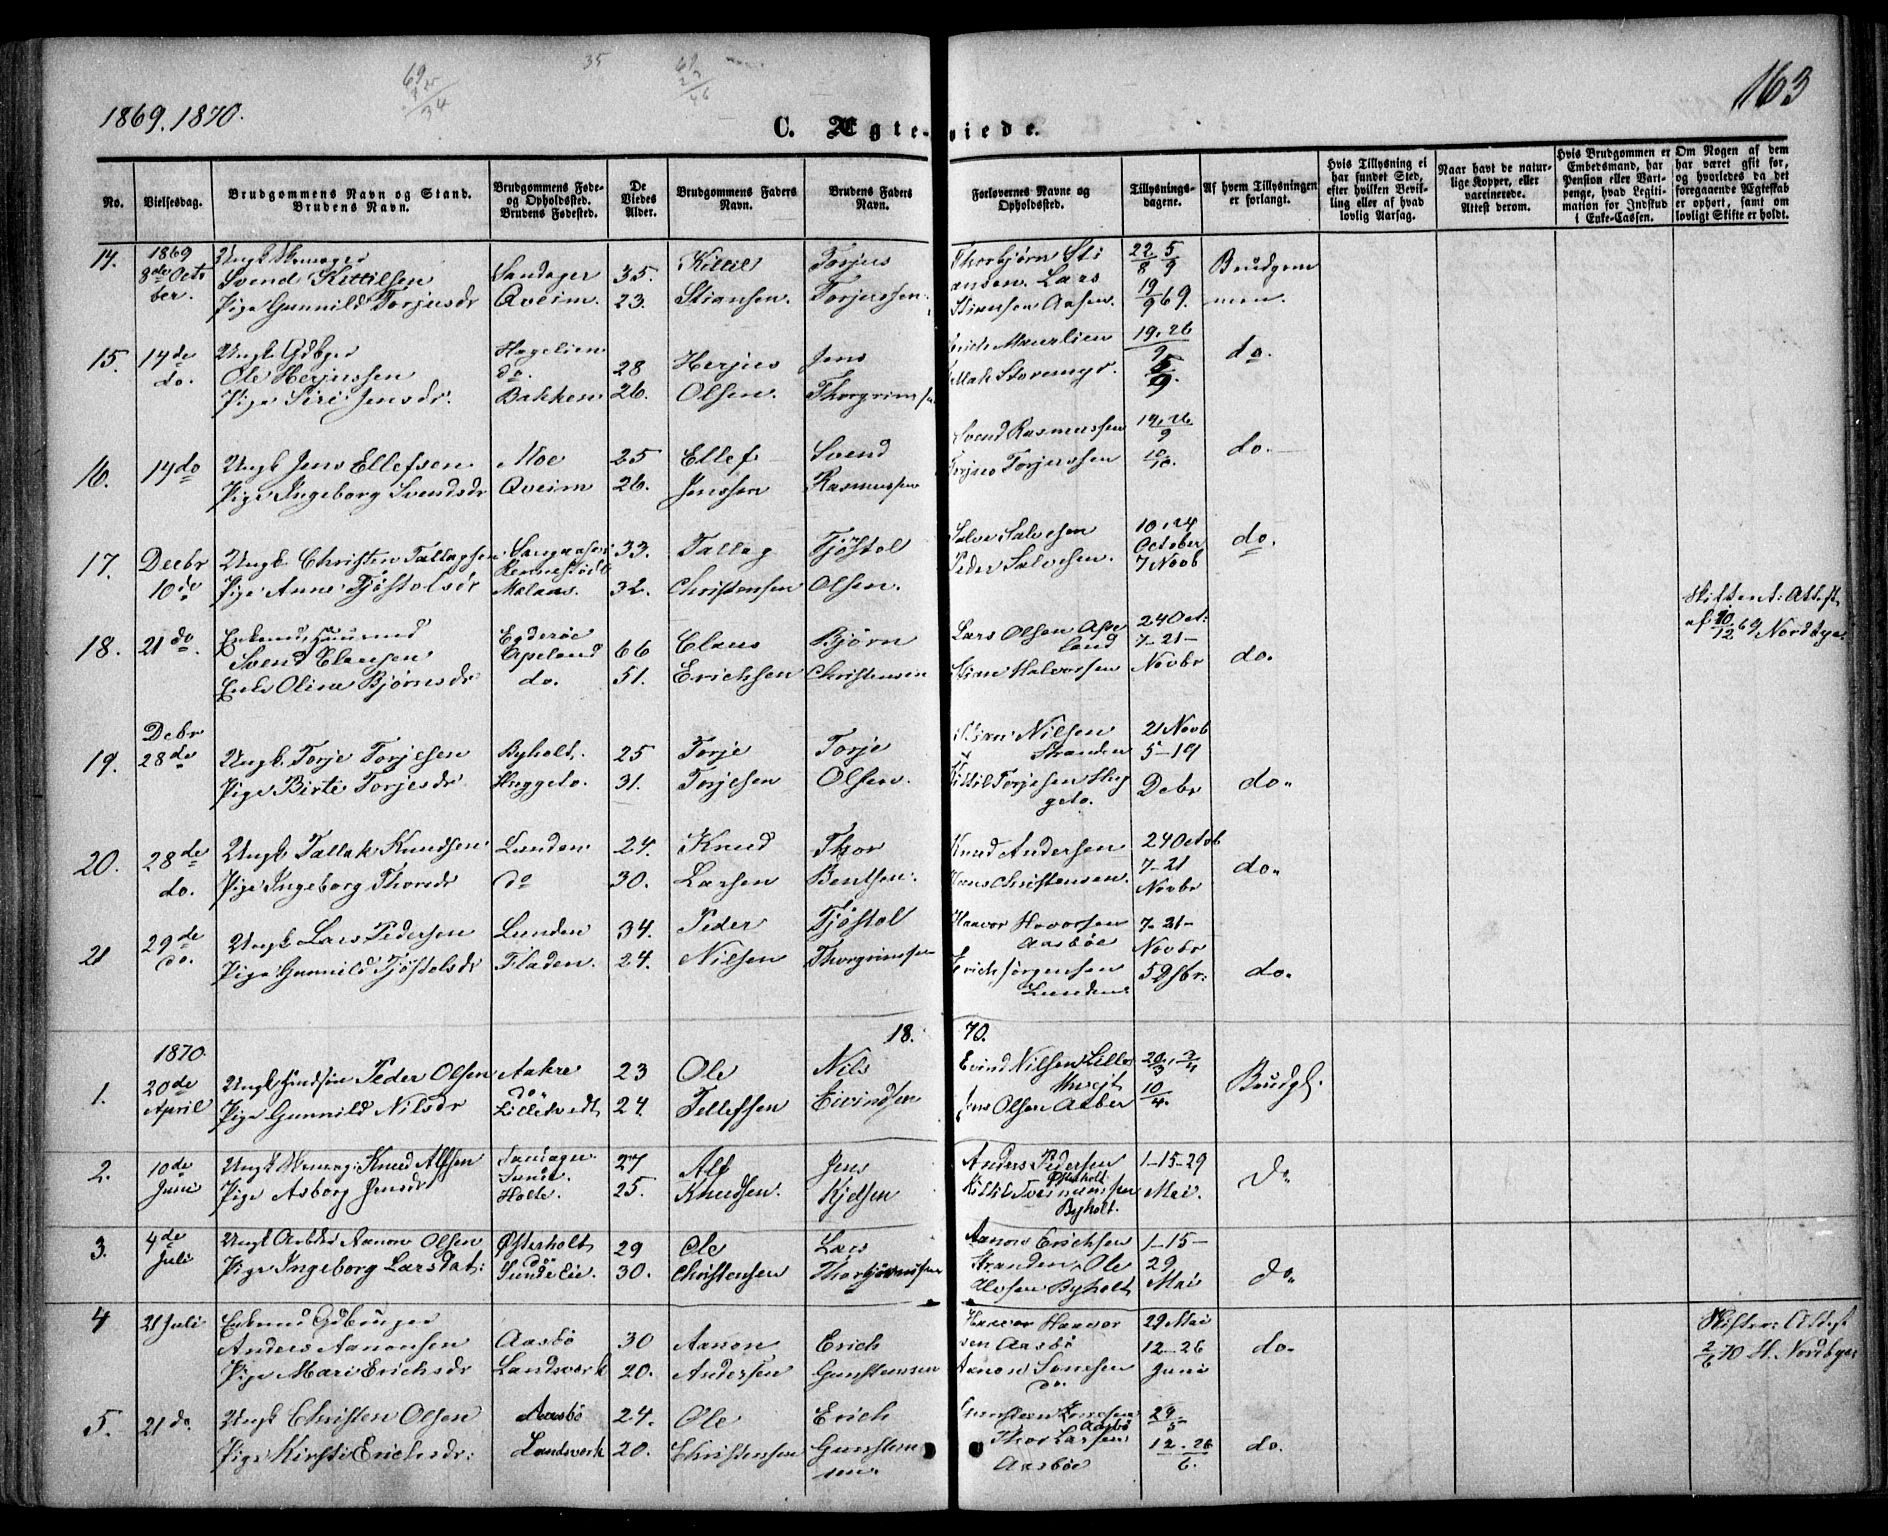 1869. 1870.
163
C. Ægteviede.
No.
Vielsesdag.
Brudgommens Navn og Stand.
Brudens Navn.
Brudgommens Føde-
og Opholdssted.
Brudens Fødested.
De
Viedes
Alder.
Brudgommens Faders
Navn.
Brudens Faders
Navn.
Forlovernes Navne og
Opholdssted.
Tillysnings-
dagene.
Af hvem Tillysningen
er forlangt.
Hvis Tillysning ei
har fundet Sted,
efter hvilken Bevil-
ling eller af hvad
lovlig Aarsag.
Naar havt de natur-
lige Kopper, eller
vaccinerede.
Attest derom.
Hvis Brudgommen er
Embedsmand, har
Pension eller Vart-
penge, hvad Legiti-
mation for Indskud
i Enke-Cassen.
Om Nogen af dem
har været gift før,
og hvorledes da det
foregaaende Ægteskab
er ophørt, samt om
lovligt Skifte er holdt.
14. 1869
8de Octo
ber.
Svend Kittilsen
Pige Gunnild Torjusdr
Sandager
Qveim.
35.
23.
Kittil
Stiansen.
Torjus
Torjussen.
Thorbjørn Sti
ansen. Lars
Stiansen Aasen.
22. 5
8 9
19
9 69.
Brudgom
men.
15. 14de
do.
Ungk. Gdbgr
Ole Herjussen
Pige Siri Jensdr.
Hegelien
do.
Bakken
28
26.
Herjus
Olsen.
Jens
Thorgrims
Tellak Storemyr.
19. 26
9
5
9.
do.
16. 14 do
Ungk. Jens Ellefsen
Pige Ingeborg Svendsdr
Moe
Qveim
25
26.
Ellef
Jenssen
Svend
Rasmussen
Svend Rasmussen
Torjus Torjussen
do.
17. Decbr
10de
Ungk. Christen Tallagsen
Pige Anne Tjøstolsdr
33.
32.
Tallag
Christensen
Tjøstol
Olsen.
Salve Salvesen
Peder Salvesen.
10. 24
October
7 Novb
do.
18. 21 do.
Svend Clausen
Enke Olina Bjørnsdr
Egderøe
Apeland
do.
66
51.
Claus
Erichsen
Bjørn
Christensen
Lars Olsen Ape
land
Stian Halvorsen
24 Oct:
7-21-
Novbr
do.
19. Debr
28de
Ungk. Torje Torjesen
Pige Birte Torjesdr
Byholt.
Heggeto.
25
31.
Torje
Torjesen
Torje
Olsen.
Nilsen
Stranden
Kittil Torjesen Heg
geto.
21 Novb
5-19
Debr
do.
20. 28de
do.
Ungk. Tallak Knudsen
Pige Ingeborg Thorsdr
Lunden
do
24.
30.
Knud
Larsen
Thor
Bentsen.
Knud Andersen
Hans Christensen.
24 Octob
7-21
Novbr
do.
21 29de
do.
Ungk. Lars Pedersen
Pige Gunnild Tjøstolsdr
Lunden
Fladen.
34.
24.
Peder
Nilsen
Tjøstol
Thorgrimsen
Haavor Hovorsen
Aasbøe
Erich Jørgensen
Lunden
7. 21-
Novbr
5 Dsbr:
do.
18. 70.
1. 1870.
20de
April
Peder Olsen
Pige Gunnild Nilsdr
Aakre
do.
Lilletvedt
23
24
Ole
Tellefsen
Nils
Eivindsen
Evind Nilsen Lille
Jens Olsen Aaber
10
4.
Brudg.
2. 10de
Juni
Knud Alfsen
Pige Asborg Jensdr
Sunde.
Holte.
27
25.
Alf
Knudsen.
Jens
Kjelsen
Anders Pedersen
Østerholt
Byholt.
1-15-29
Mai.
do
3. 4de
Juli
Aanon Olsen
Pige Ingeborg Larsdat:
Østerholt
do
Sundeeie.
29
30.
Ole
Christensen
Lars
Thorbjørnsen
Aanon Erichsen
Stranden. Ole
Olssen Byholt
1-15-
29
Mai
do.
4 21 Juli
Enkemd Gdbruger
Anders Aanonsen
Pige Mari Erichsdr
Aasbø
Landsverk
30
20.
Aanon
Andersen
Erich
Gunstensen
Haavor Haavor
sen Aasbø
Aanon Sønesen
do.
29 Mai
12-26
Juni
do.
5. 21 do.
Ungk. Christen Olsen
Pige Kirsti Erichsdr:
Aasbø
Landsverk
24.
20.
Ole
Christensen
Erich
Gunsten
sen.
Aasbø
Thor Larsen
Aasbøe
29
5
12. 26
6.
do.